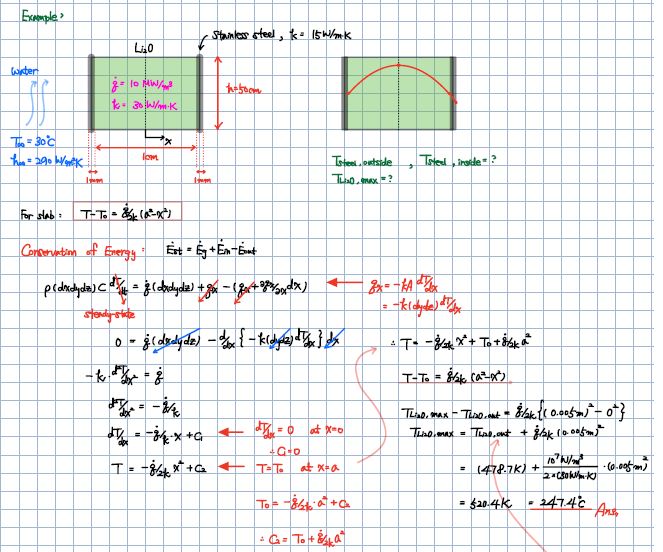 Example>
Stainless steel, k = 15 W/m·K
Li₂O
water
ġ = 10 MW/m³
k = 30 W/m·K
h=50cm
T∞ = 30°C
h∞ = 290 W/m²K
x
1cm
1mm
1mm
Tsteel, outside , Tsteel, inside = ?
TLi2O, max = ?
For slab : T-T₀ = ġ/2k (a²-x²)
Conservation of Energy : Ėst = Ėg + Ėin - Ėout
ρ(dxdydz) C dT/dt = ġ(dxdydz) + qx - (qx + ∂qx/∂x dx)
qx = -kA dT/dx
= -k(dydz) dT/dx
steady-state
0 = ġ(dxdydz) - d/dx { -k(dydz) dT/dx } dx
-k · d²T/dx² = ġ
d²T/dx² = -ġ/k
dT/dx = -ġ/k · x + C₁
dT/dx = 0 at x=0
∴ C₁=0
T = -ġ/2k x² + C₂
T=T₀ at x=a
T₀ = -ġ/2k · a² + C₂
∴ C₂ = T₀ + ġ/2k a²
∴ T = -ġ/2k x² + T₀ + ġ/2k a²
T-T₀ = ġ/2k (a²-x²)
TLi2O, max - TLi2O, out = ġ/2k {(0.005m)² - 0²}
TLi2O, max = TLi2O, out + ġ/2k (0.005m)²
= (478.7K) + 10⁷ W/m³ / 2×(30W/m·K) · (0.005m)²
= 520.4K = 247.4°C Ans.